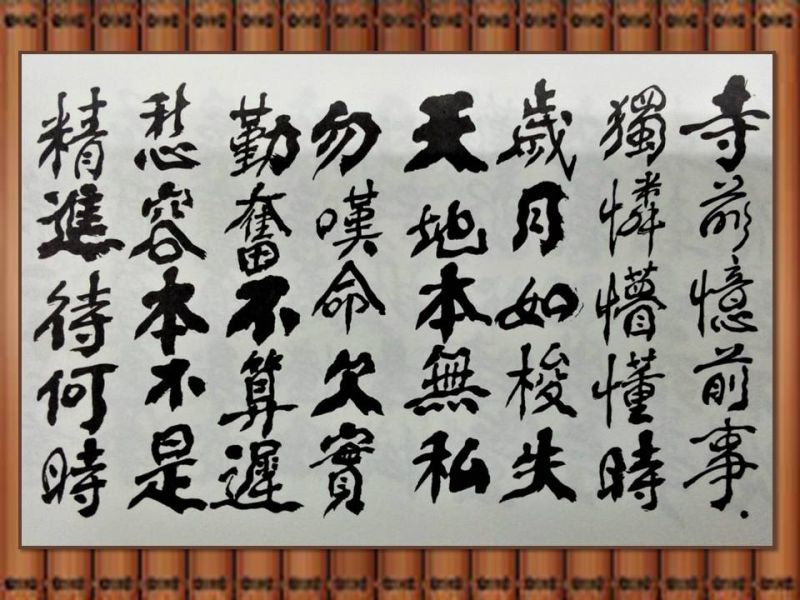 寺前憶前事.
獨憐懵懂時
歲月如梭失
天地本無私
勿嘆命欠實
勤奮不算遲
愁容本不是
精進待何時